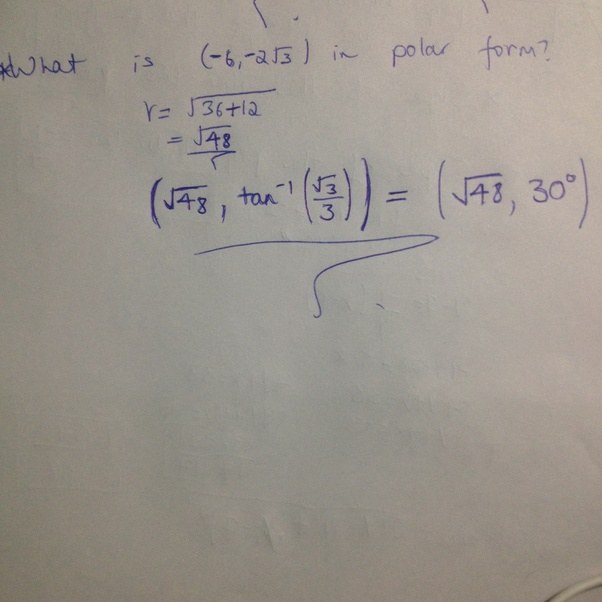 *What is (-6, -2√3) in polar form?
r = √36+12
= √48
(√48, tan⁻¹(√3/3)) = (√48, 30°)